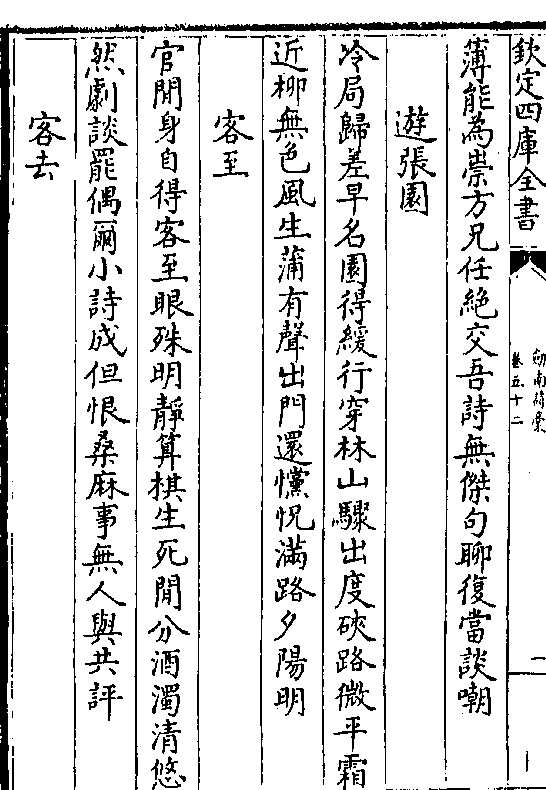 欽定四庫全書
劍南詩槀
卷五十二
薄能為祟方兄任絶交吾詩無傑句聊復當談嘲
遊張園
冷局歸差早名園得緩行穿林山驟出度硤路微平霜
近栁無色風生蒲有聲出門還儻怳滿路夕陽明
客至
官閒身自得客至眼殊明靜算棋生死閒分酒濁清悠
然劇談罷偶爾小詩成但恨桑麻事無人與共評
客去